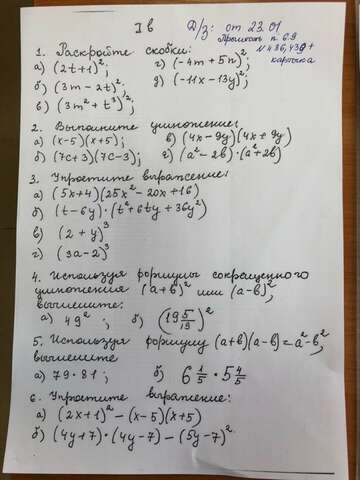 I в
Д/з: от 23.01
Прочитать п. 6.9
N 436,439+
карточка
1. Раскройте скобки:
а) (2t+1)²;
г) (-4m+5n)²;
б) (3m-2t)²;
д) (-11x-13y)²;
в) (3m²+t³)²;
2. Выполните умножение:
а) (x-5)(x+5);
в) (4x-9y)(4x+9y)
б) (7c+3)(7c-3);
г) (a²-2b)·(a²+2b)
3. Упростите выражение:
а) (5x+4)(25x²-20x+16)
б) (t-6y)·(t²+6ty+36y²)
в) (2+y)³
г) (3a-2)³
4. Используя формулы сокращенного
умножения (a+b)² или (a-b)²,
вычислите:
а) 49²; б) (19 5/19)²
5. Используя формулу (a+b)(a-b)=a²-b²,
вычислите
а) 79·81; б) 6 1/5 · 5 4/5
6. Упростите выражение:
а) (2x+1)²-(x-5)(x+5)
б) (4y+7)·(4y-7)-(5y-7)²